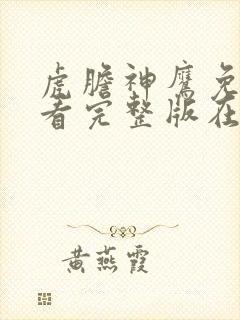 虎膽神鷹免
看完整版在
黄燕霞